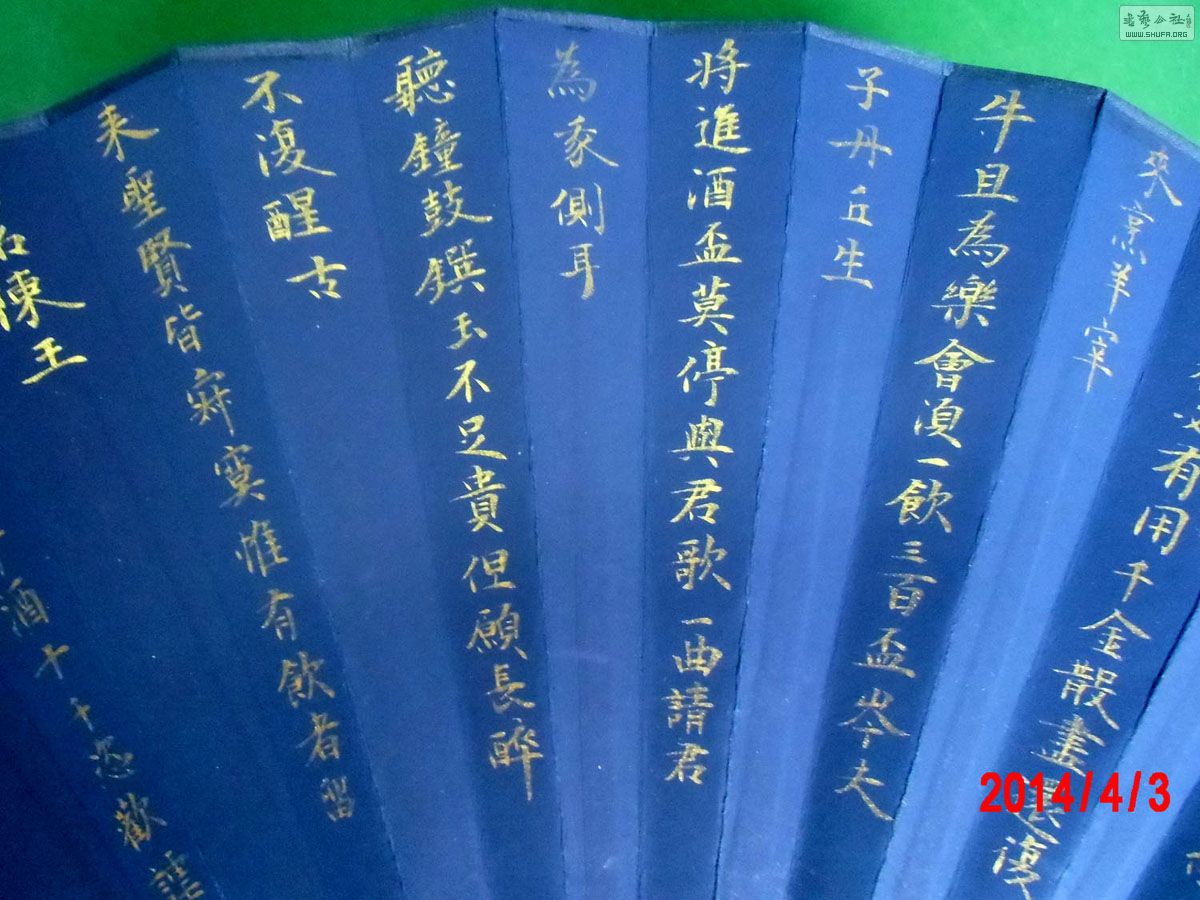 必有用千金散盡還復
来烹羊宰
牛且為樂會須一飲三百盃岑夫
子丹丘生
將進酒盃莫停與君歌一曲請君
為我側耳
聽鐘鼓饌玉不足貴但願長醉
不復醒古
来聖賢皆寂寞惟有飲者留
名陳王
酒十千恣歡謔
2014/4/3
書藝公社
WWW.SHUFA.ORG